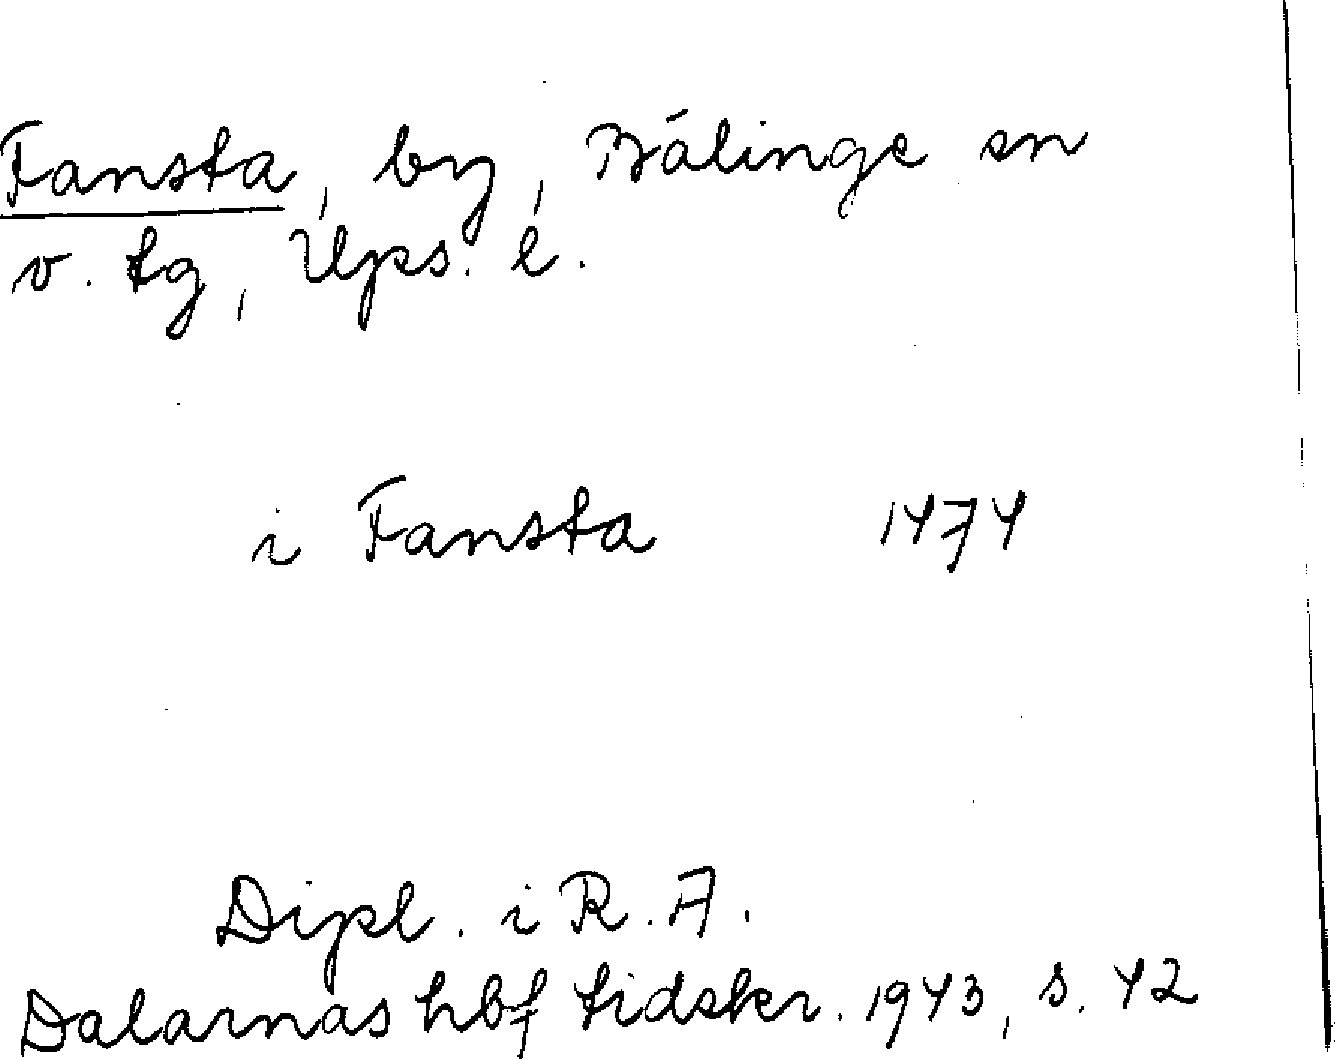 Fansta, by, Bälinge sn
v. tg, Ups. l.
i Fansta 1474
Dipl. i R.A.
Dalarnas hbf tidskr. 1943, s. 42